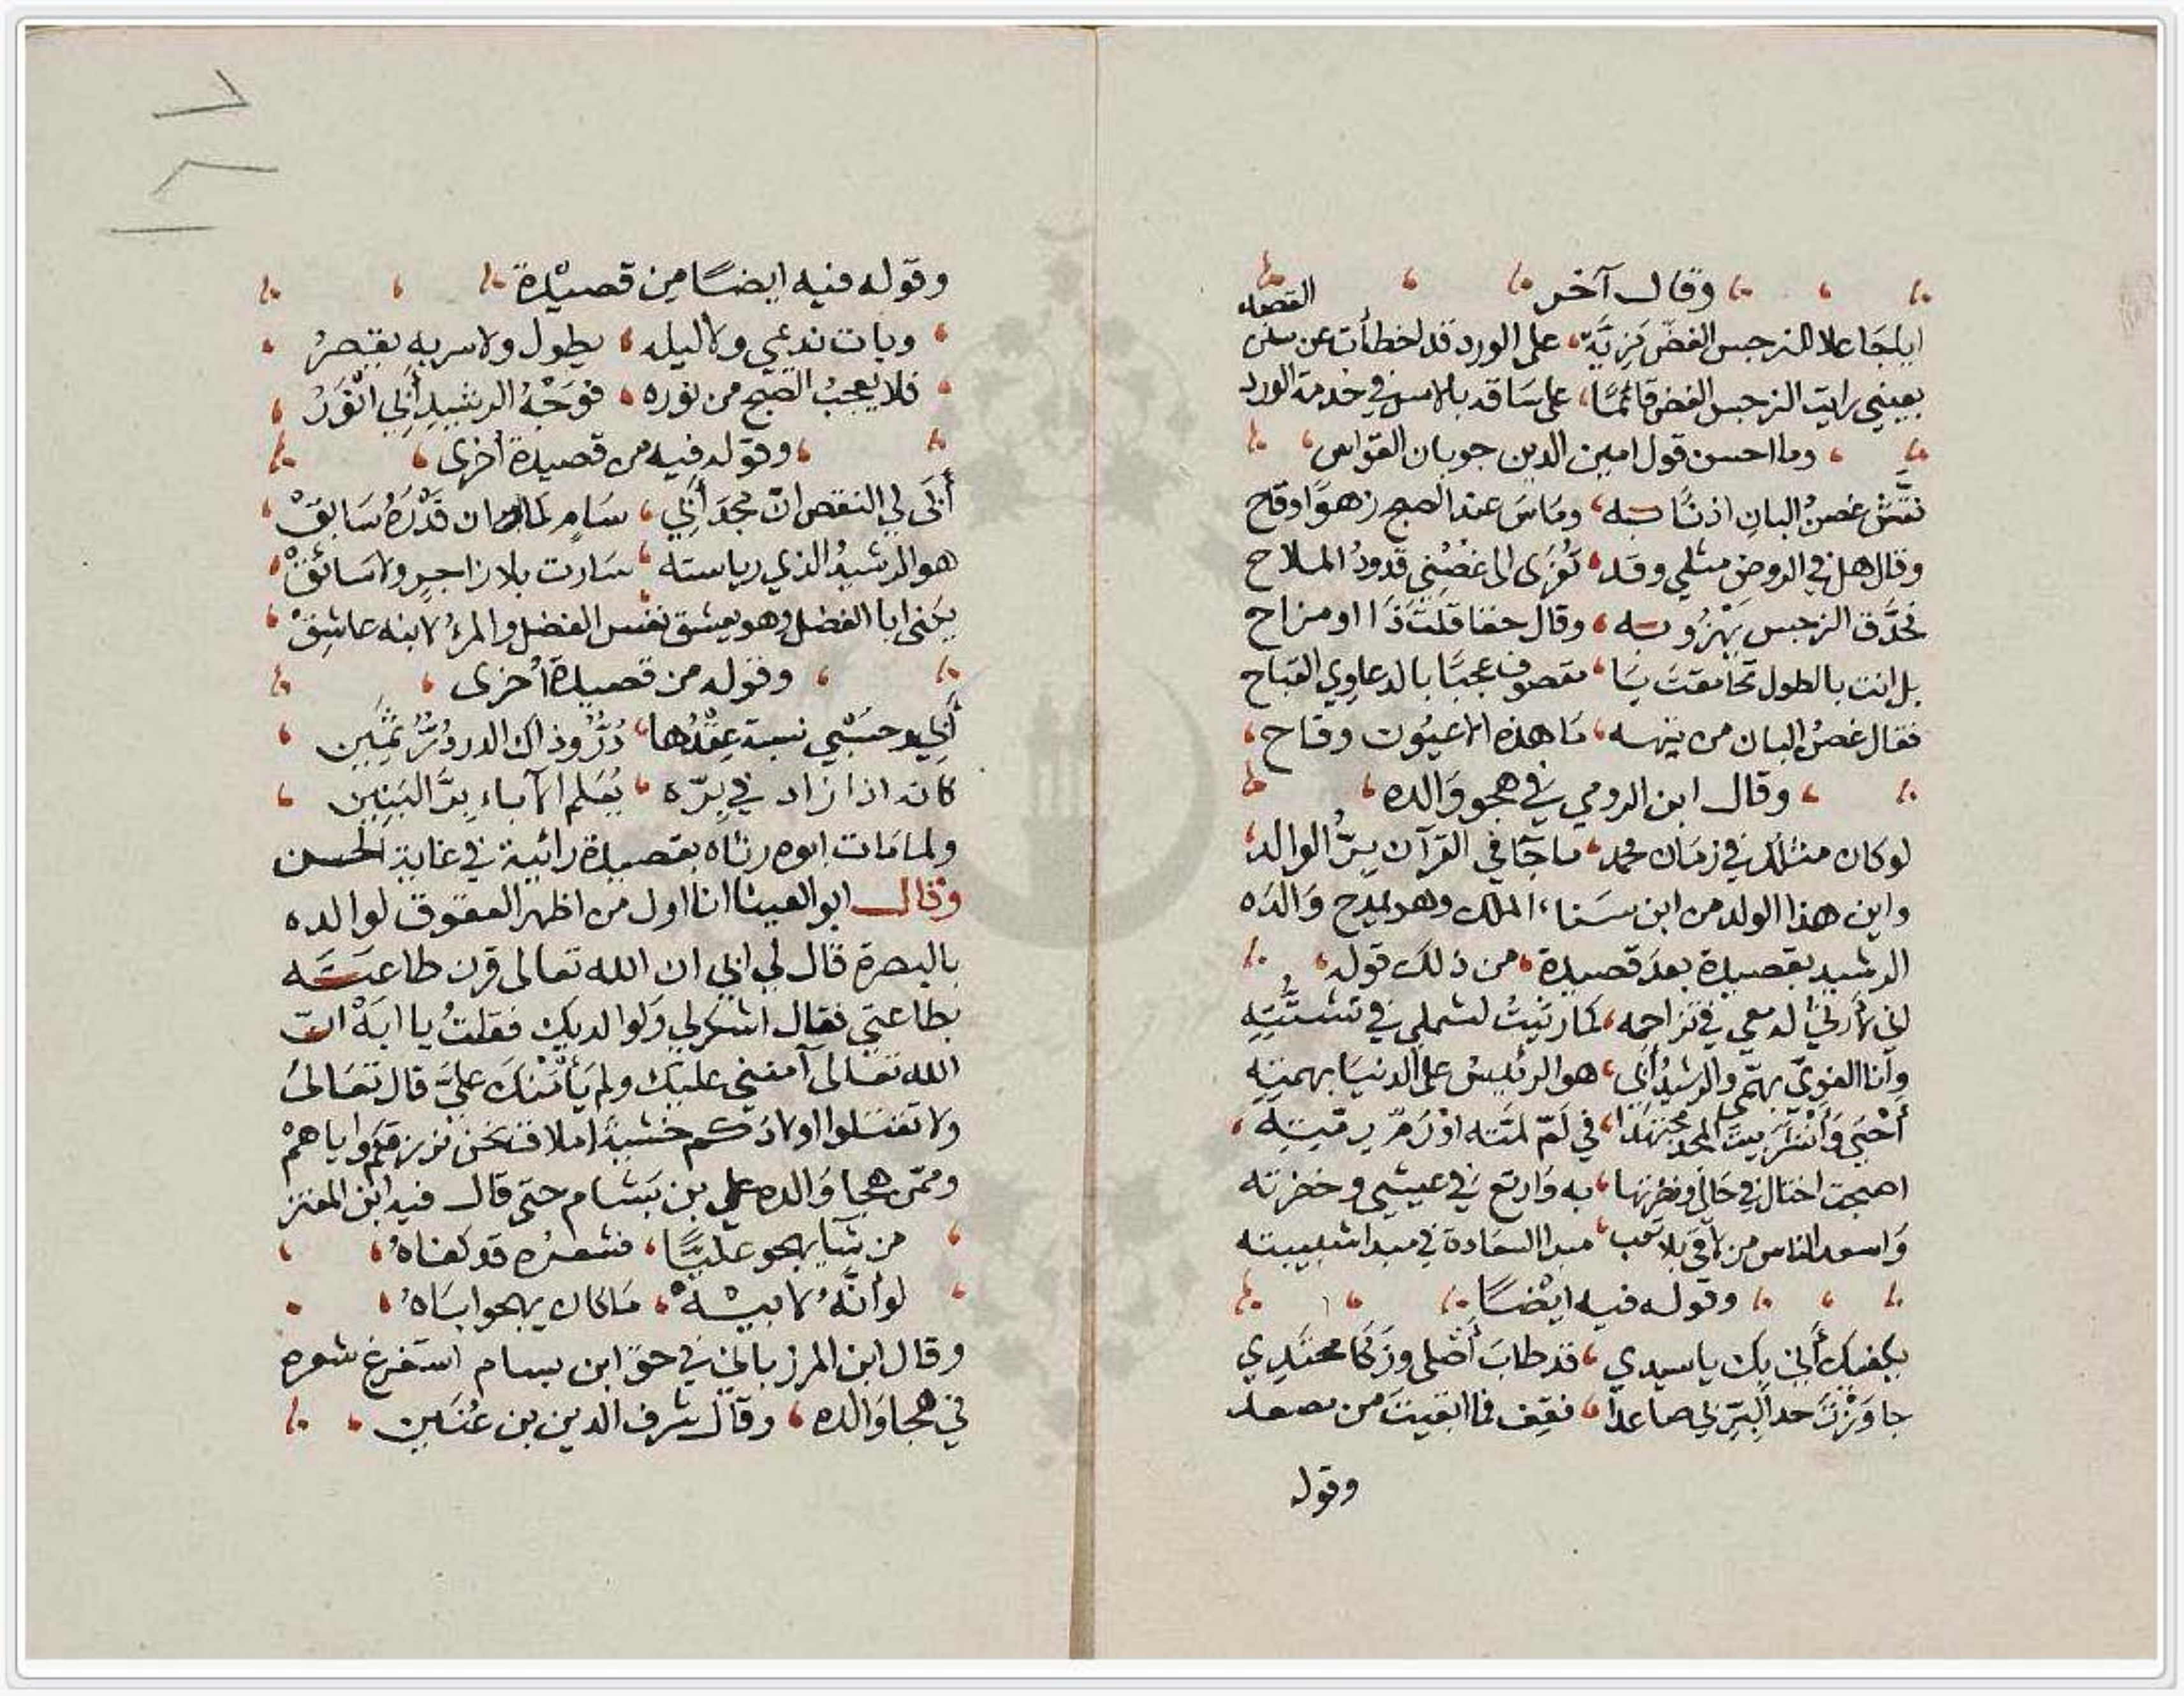 وقال آخر
ايا جاعلا للنرجس الغضّ مزيّة على الورد قد اخطأت عن سنن
القصد
بعيني رايت النرجس الغض قائمًا على ساقه بالامس في خدمة الورد
وما احسن قول امين الدين جوبان القواس
غصنُ البانِ اذنابه ومَاسَ عند الصبح زهوًا وقاح
وقال هل في الروض مثلي وقد تُعزى الى غُصْني قدودُ الملاح
فحدَّق النرجس يَهْزُو به وقال حقا قلتَ ذَا او مزاح
بل انت بالطول تحامقتَ يا مقصوف عجبًا بالدعاوي القباح
فقال غصنُ البان من تيهه مَا هذه الاعيُون وقاح
وقال ابن الرومي في هجو وَالده
لو كان مثلك في زمان محمد ما جَا في القرآن برُّ الوالد
واين هذا الولد من ابن سَناء الملك وهو يمدح وَالدَه
الرشيد بقصيدة بعدَ قصيدة من ذلك قوله
اني لأرثي لدمعي في تزاحمه كما رثيتُ لشملي في تشتُّتِهِ
وانا الغوِيّ بهمّي والرشيدُ أبي هو الرئيسُ على الدنيَا بهمتِهِ
في لَمّ لمّته اوْ رَمّ رميته
اصبحت اختال في حَالي ونضرتها به وَارتع في عيشي وخضرته
وَاسعد الناس من لاقَى بلا تعب مبدا السعَادة في مبدا شبيبته
وقوله فيه ايضًا
يكفيك أني بك يا سيدي قد طابَ أَصْلي وزَكَا محتَدِي
جاوَزْتَ حد البِرّ لي صاعدًا فقِف فما ابقيتَ من مصعد
وقوله
وقوله فيه ايضًا من قصيْدة
وبات نديمي ولا ليله يطول ولا سربه يقصرُ
فلا يُعجبُ الصبح من نوره فوَجْهُ الرشيدِ أبي انْوَرُ
وقوله فيه من قصيدة أخرى
أبَى لي النقص انّ مجدَ أبي سَامٍ لما ان قَدْرَهُ سَابقْ
هو الرشيدُ الذي رياسته سَارت بلا زاجرٍ ولا سَائقْ
يكنى ابا الفضل وهو يعشق نفس الفضل والمرءُ لابنه عاشِقْ
وقوله من قصيدة أخرى
أبي وحَسْبي نسبة عِقْدُها دُرُّ وذاك الدر دُرٌّ ثمين
كانه اذا زاد في بِرّه يُعَلم الآباء برَّ البَنِين
ولما مَات ابوه رثاه بقصيدة رائية في غاية الحسن
وقال ابو العينا انا اول من اظهر العقوق لوالده
بالبصرة قال لي ابي ان الله تعالى قرن طاعتَه
بطاعتي فقال اشكر لي ولوالديك فقلتُ يا ابَهْ انّ
الله تعالى آمنني عليك ولم يَأْمَنْكَ عليَّ قال تعَالى
ولا تقتلوا اولادكم خشيةَ املاق نحن نرزقكم واياهمْ
وممّن هجا وَالده علي بن بَسّام حتى قال فيه ابن المعتز
من شا يهجو عليًّا فشعرُه قد كفاهُ
لو أنَّهُ لابيْهْ مَا كان يهجو ابَاهُ
وقال ابن المرزباني في حق ابن بسام استفرغ شعره
في هجا وَالده وقال شرف الدين بن عُنَين